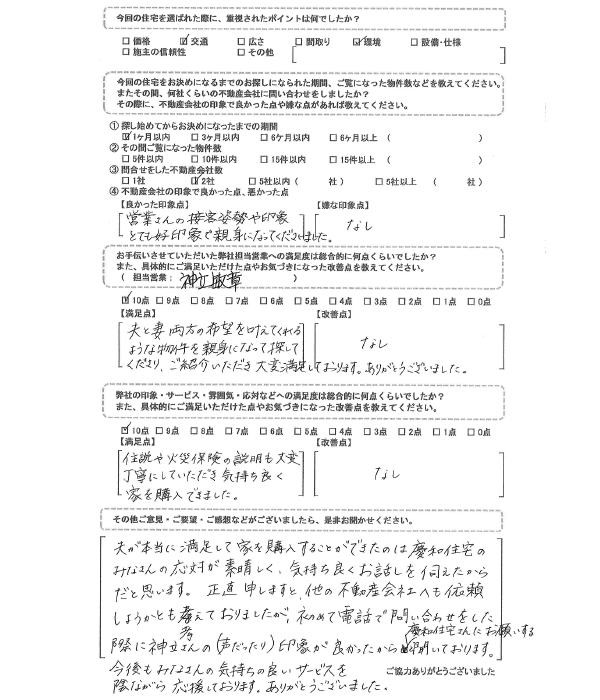 今回の住宅を選ばれた際に、重視されたポイントは何でしたか？
□ 価格 ☑ 交通 □ 広さ □ 間取り ☑ 環境 □ 設備・仕様
□ 施主の信頼性 □ その他
今回の住宅をお決めになるまでのお探しになられた期間、ご覧になった物件数などを教えてください。
またその間、何社くらいの不動産会社に問い合わせをしましたか？
その際に、不動産会社の印象で良かった点や嫌な点があれば教えてください。
① 探し始めてからお決めになったまでの期間
☑ 1ヶ月以内 □ 3ヶ月以内 □ 6ケ月以内 □ 6ヶ月以上 （ ）
② その間ご覧になった物件数
□ 5件以内 □ 10件以内 □ 15件以内 □ 15件以上 （ ）
③ 問合せをした不動産会社数
□ 1社 ☑ 2社 □ 5社以内（ 社 ） □ 5社以上 （ 社）
④ 不動産会社の印象で良かった点、悪かった点
【良かった印象点】 【嫌な印象点】
営業さんの接客姿勢や印象
とても好印象で親身になってくださいました。
なし
お手伝いさせていただいた弊社担当営業への満足度は総合的に何点くらいでしたか？
また、具体的にご満足いただけた点やお気づきになった改善点を教えてください。
（ 担当営業： 神立敏章 ）
☑ 10点 □ 9点 □ 8点 □ 7点 □ 6点 □ 5点 □ 4点 □ 3点 □ 2点 □ 1点 □ 0点
【満足点】 【改善点】
夫と妻両方の希望を叶えてくれる
ような物件を親身になって探して
くださり、ご紹介いただき大変満足しております。ありがとうございました。
なし
弊社の印象・サービス・雰囲気・応対などへの満足度は総合的に何点くらいでしたか？
また、具体的にご満足いただけた点やお気づきになった改善点を教えてください。
☑ 10点 □ 9点 □ 8点 □ 7点 □ 6点 □ 5点 □ 4点 □ 3点 □ 2点 □ 1点 □ 0点
【満足点】 【改善点】
住設や火災保険の説明も大変
丁寧にしていただき気持ち良く
家を購入できました。
なし
その他ご意見・ご要望・ご感想などがございましたら、是非お聞かせください。
夫が本当に満足して家を購入することができたのは慶和住宅の
みなさんの応対が素晴しく、気持ち良くお話しを伺えたから
だと思います。正直申しますと、他の不動産会社へも依頼
しようかとも考えておりましたが、初めて電話で問い合わせをした
際に神立さんの（声だったり）印象が良かったから
慶和住宅さんにお願いする
ております。
今後もみなさんの気持ちの良いサービスを
陰ながら応援しております。ありがとうございました。
ご協力ありがとうございました